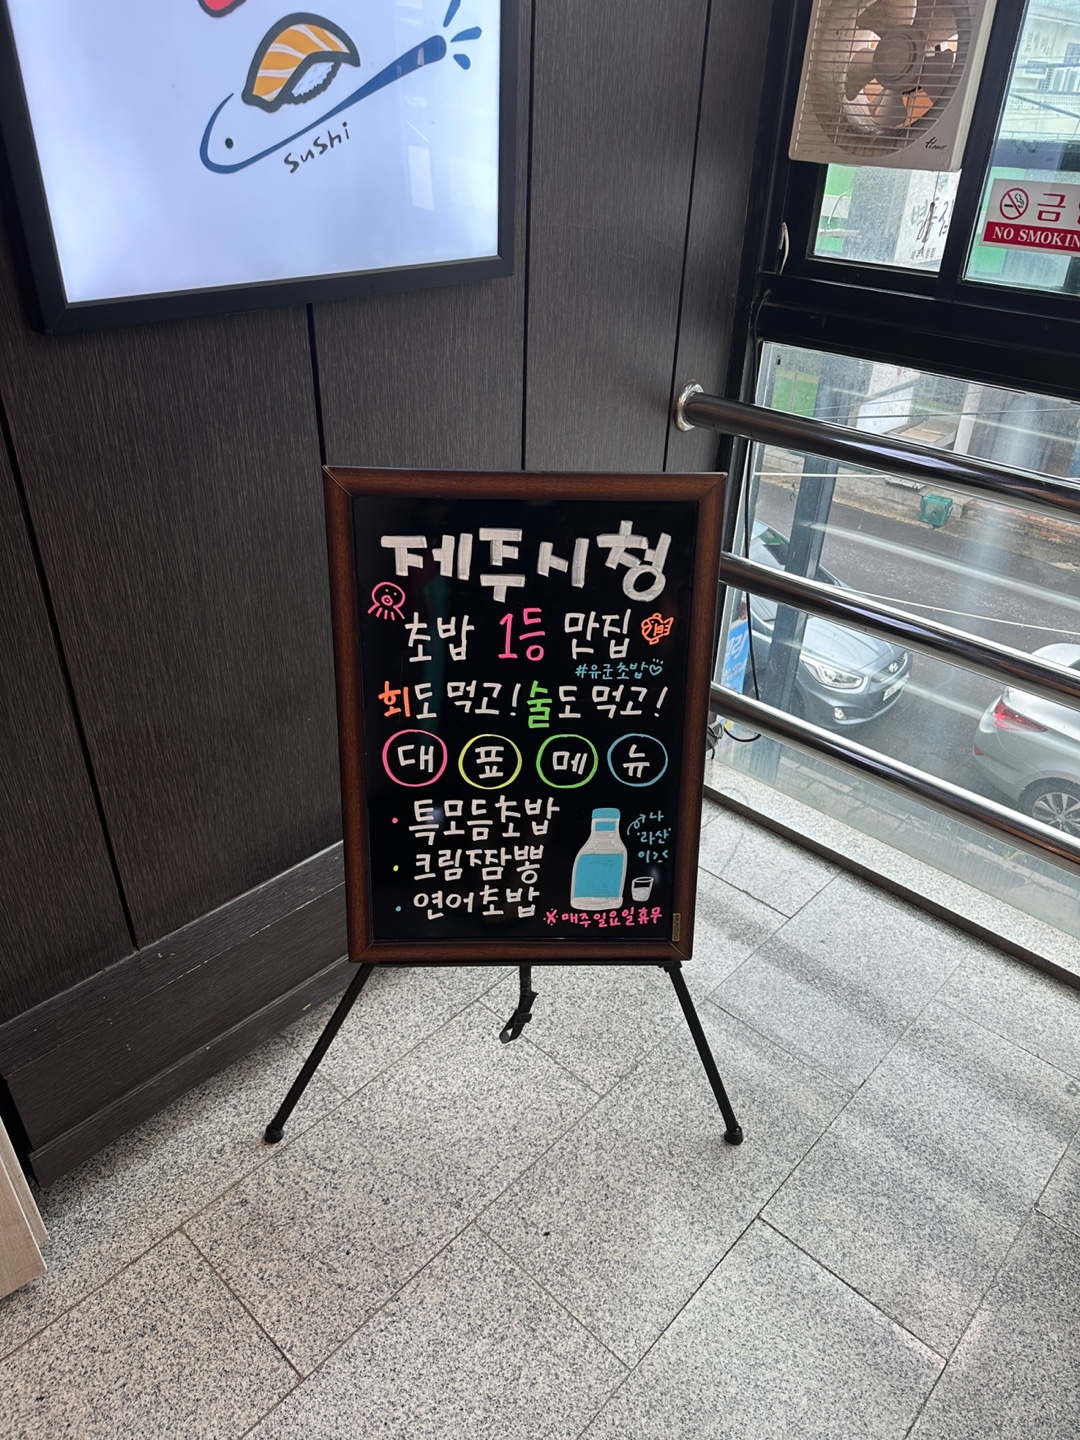 sushi
금
NO SMOKIN
제주시청
초밥 1등 맛집
#유군초밥
회도 먹고! 술도 먹고!
대 표 메 뉴
특모듬초밥
크림짬뽕
연어초밥
나
라산
※매주일요일휴무